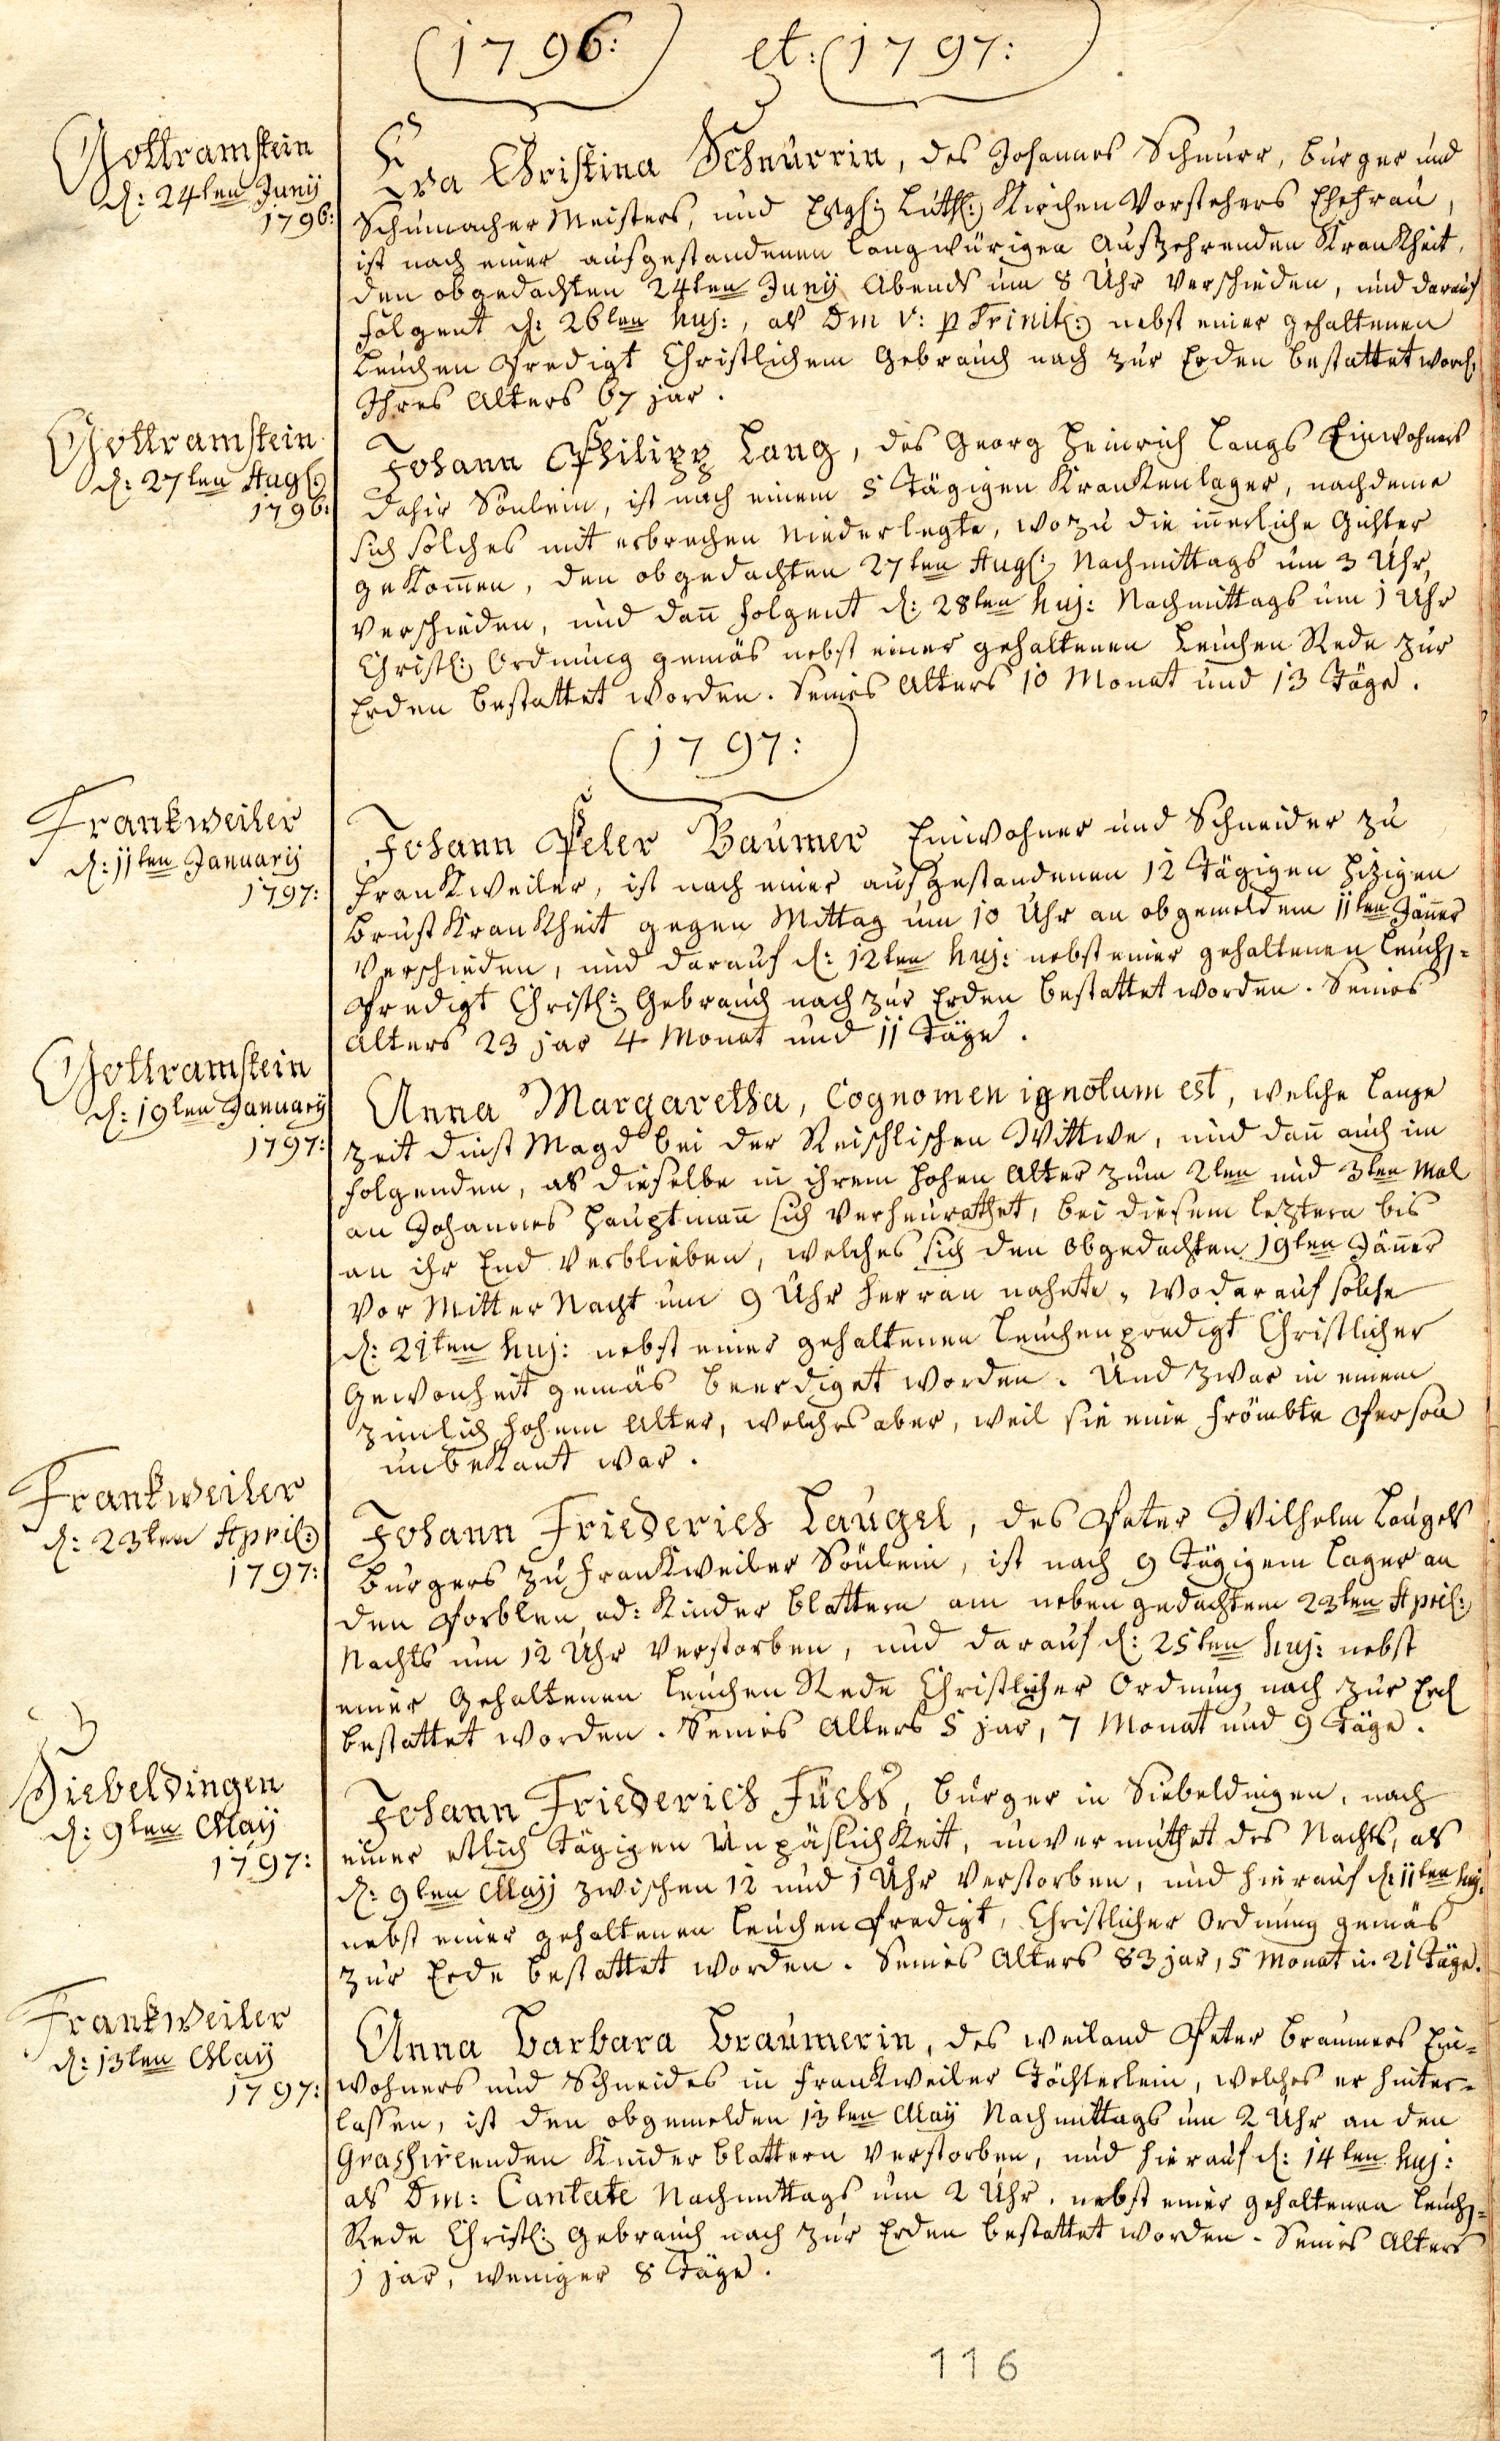 1796: et: 1797:
Gottramstein
d: 24ten Junÿ
1796:
Eva Christina Schnurrin, des Johannes Schnurr, burger und
Schumacher Meisters, und Evgl: Luth: Kirchen Vorstehers Ehefrau,
ist nach einer ausgestandenen langwürigen Auszehrenden Krankheit,
den obgedachten 24ten Junÿ Abends um 8 Uhr verschieden, und darauf
folgent d: 26ten huj:, als Dm V: p Trinit: nebst einer gehaltenen
Leuchen Predigt Christlichem Gebrauch nach zur Erden bestattet word.
Ihres Alters 67 jar.
Gottramstein
d: 27ten Aug:
1796:
Johann Philipp Lang, des Georg Heinrich Langs Einwohners
dahir Sönlein, ist nach einem 5 tägigen Krankenlager, nachdeme
sich solches mit erbrechen niederlegte, wozu die inerliche Gichter
gekomen, den obgedachten 27ten Aug: Nachmittags um 3 Uhr,
verschieden, und dan folgent d: 28ten huj: Nachmittags um 1 Uhr
Christl: Ordnung gemäs nebst einer gehaltenen Leuchen Rede zur
Erden bestattet worden. Seines Alters 10 Monat und 13 Täge.
1797:
Frankweiler
d: 11ten Januarÿ
1797:
Johann Peter Baumer Einwohner und Schneider zu
Frankweiler, ist nach einer ausgestandenen 12 tägigen hizigen
Brust Krankheit gegen Mittag um 10 Uhr an obgemeldem 11ten Jäner
verschieden, und darauf d: 12ten huj: nebst einer gehaltenen Leuch-
Predigt Christl: Gebrauch nach zur Erden bestattet worden. Seines
Alters 23 jar 4 Monat und 11 Täge.
Gottramstein
d: 19ten Januarÿ
1797:
Anna Margaretha, Cognomen ignotum est, welche lange
zeit dinst Magd bei der Reischlischen Wittwe, und dan auch im
folgenden, als dieselbe in ihrem hohen Alter zum 2ten und 3ten Mal
an Johannes Hauptman sich verheurathet, bei diesem leztern bis
an ihr End verblieben, welches sich den obgedachten 19ten Jäner
vor Mitter Nacht um 9 Uhr herran nahete, wo darauf solche
d: 21ten huj: nebst einer gehaltenen Leuchenpredigt Christlicher
Gewonheit gemäs beerdiget worden. Und zwar in einem
zimlich hohem Alter, welches aber, weil sie eine frömbte Person
unbekant war.
Frankweiler
d: 23ten April:
1797:
Johann Friederich Laugel, des Peter Wilhelm Laugels
burgers zu Frankweiler Sönlein, ist nach 9 tägigem Lager an
den Porblen od: Kinder blattern am neben gedachtem 23ten April:
Nachts um 12 Uhr verstorben, und darauf d: 25ten huj: nebst
einer Gehaltenen Leuchen Rede Christlicher Ordnung nach zur Erd
bestattet worden. Seines Alters 5 jar, 7 Monat und 9 Täge.
Siebeldingen
d: 9ten Maÿ
1797:
Johann Friederich Füchs, burger in Siebeldingen, nach
einer etlich tägigen Unpäslichkeit, unvermuthet des Nachts, als
d: 9ten Maÿ zwischen 12 und 1 Uhr verstorben, und hierauf d: 11ten huj:
nebst einer gehaltenen Leuchen Predigt, Christlicher Ordnung gemäs
zur Erde bestattet worden. Seines Alters 83 jar, 5 Monat u. 21 Täge.
Frankweiler
d: 13ten Maÿ
1797:
Anna Barbara Braumerin, des weiland Peter Braumers Ein-
wohners und Schneiders in Frankweiler Töchterlein, welches er hinter-
lassen, ist den obgemelden 13ten Maÿ Nachmittags um 2 Uhr an den
Grashirenden Kinder blattern verstorben, und hierauf d: 14ten huj:
als Dm: Cantate Nachmittags um 2 Uhr, nebst einer gehaltenen Leuch-
Rede Christl: Gebrauch nach zur Erden bestattet worden. Seines Alters
1 jar, weniger 8 Täge.
116